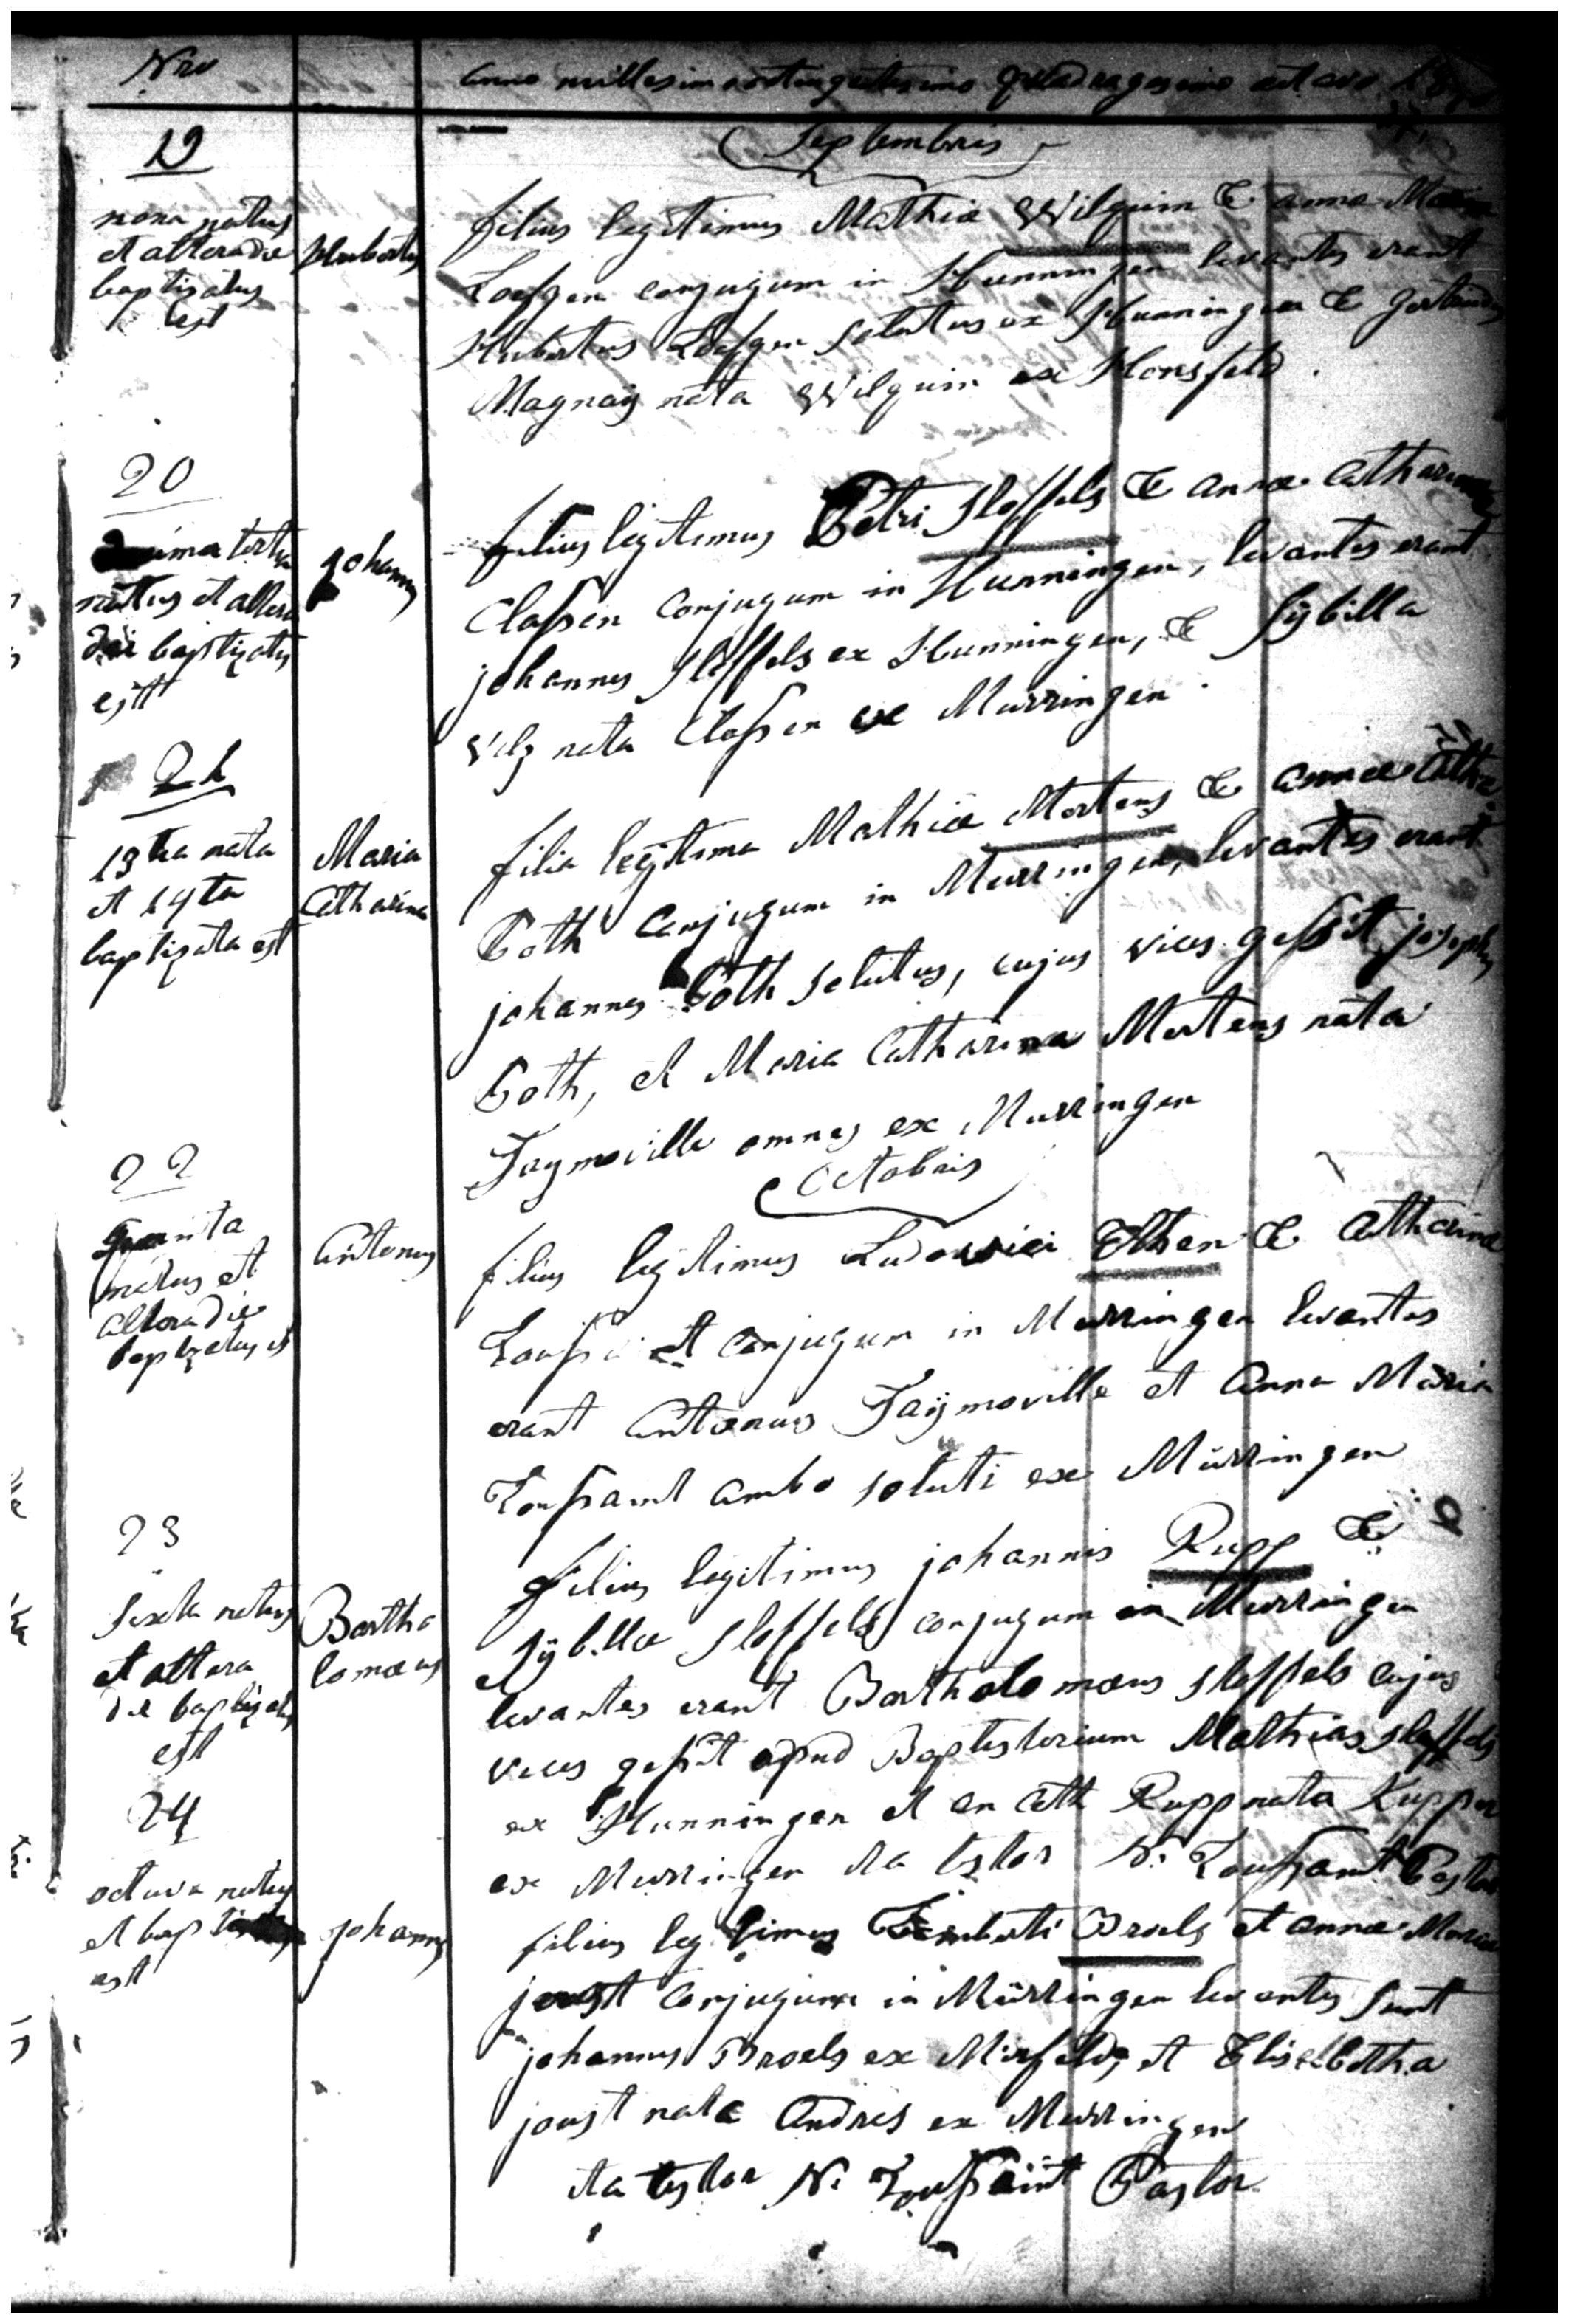 Nro
Anno millesimo octingentesimo quadragesimo octavo
Septembris
19
nona natus
et altera die
baptisatus
est
Hubertus
filius legitimus Mathiæ Wilquin & annæ Mariæ
Loefgen conjugum in Hunningen levantes erant
Hubertus Loefgen solutus ex Hunningen &
Magnaÿ nata Wilquin ex Honsfeld.
20
tertia
natus et altera
die baptizatus
est
johannes
filius legitimus Petri Stoffels & annæ Catharinæ
Claßen conjugum in Hunningen, levantes erant
johannes Stoffels ex Hunningen, & Sÿbilla
nata Claßen ex Murringen.
21
13tia nata
et 14ta
baptizata est
Maria
Catharina
filia legitima Mathiæ Mertens & annæ Catha.
Poth conjugum in Murringen, levantes erant
johannes Poth solutus, cujus vices geßit josephus
Poth, et Maria Catharina Mertens nata
Faymoville omnes ex Murringen
Octobris
22
quinta
natus et
altera die
baptizatus est
Antonus
filius legitimus Ludowici Ethen & Catharinæ
et conjugum in Murringen levantes
erant Antonus Faÿmoville et Anna Maria
Toußaint ambo soluti ex Mürringen
23
Sexta natus
et altera
die baptizatus
est
Bartho
lomæus
filius legitimus johannis Rupp &
Sÿbillæ Stoffels conjugum in Murringen
levantes erant Bartholomæus Stoffels cujus
vices geßit apud Baptistorium Mathias Stoffels
ex Hunningen et an Cath Rupp nata Küpper
ex Murringen ita testor N. Toußaint Pastor
24
octava natus
et bap
est
johannes
filius legitimus Broels et annæ Mariæ
joust conjugum in Mürringen levantes sunt
johannes Broels ex Mirfeld, et Elisabetha
joust nata Andres ex Murringen
ita testor N. Toußaint Pastor